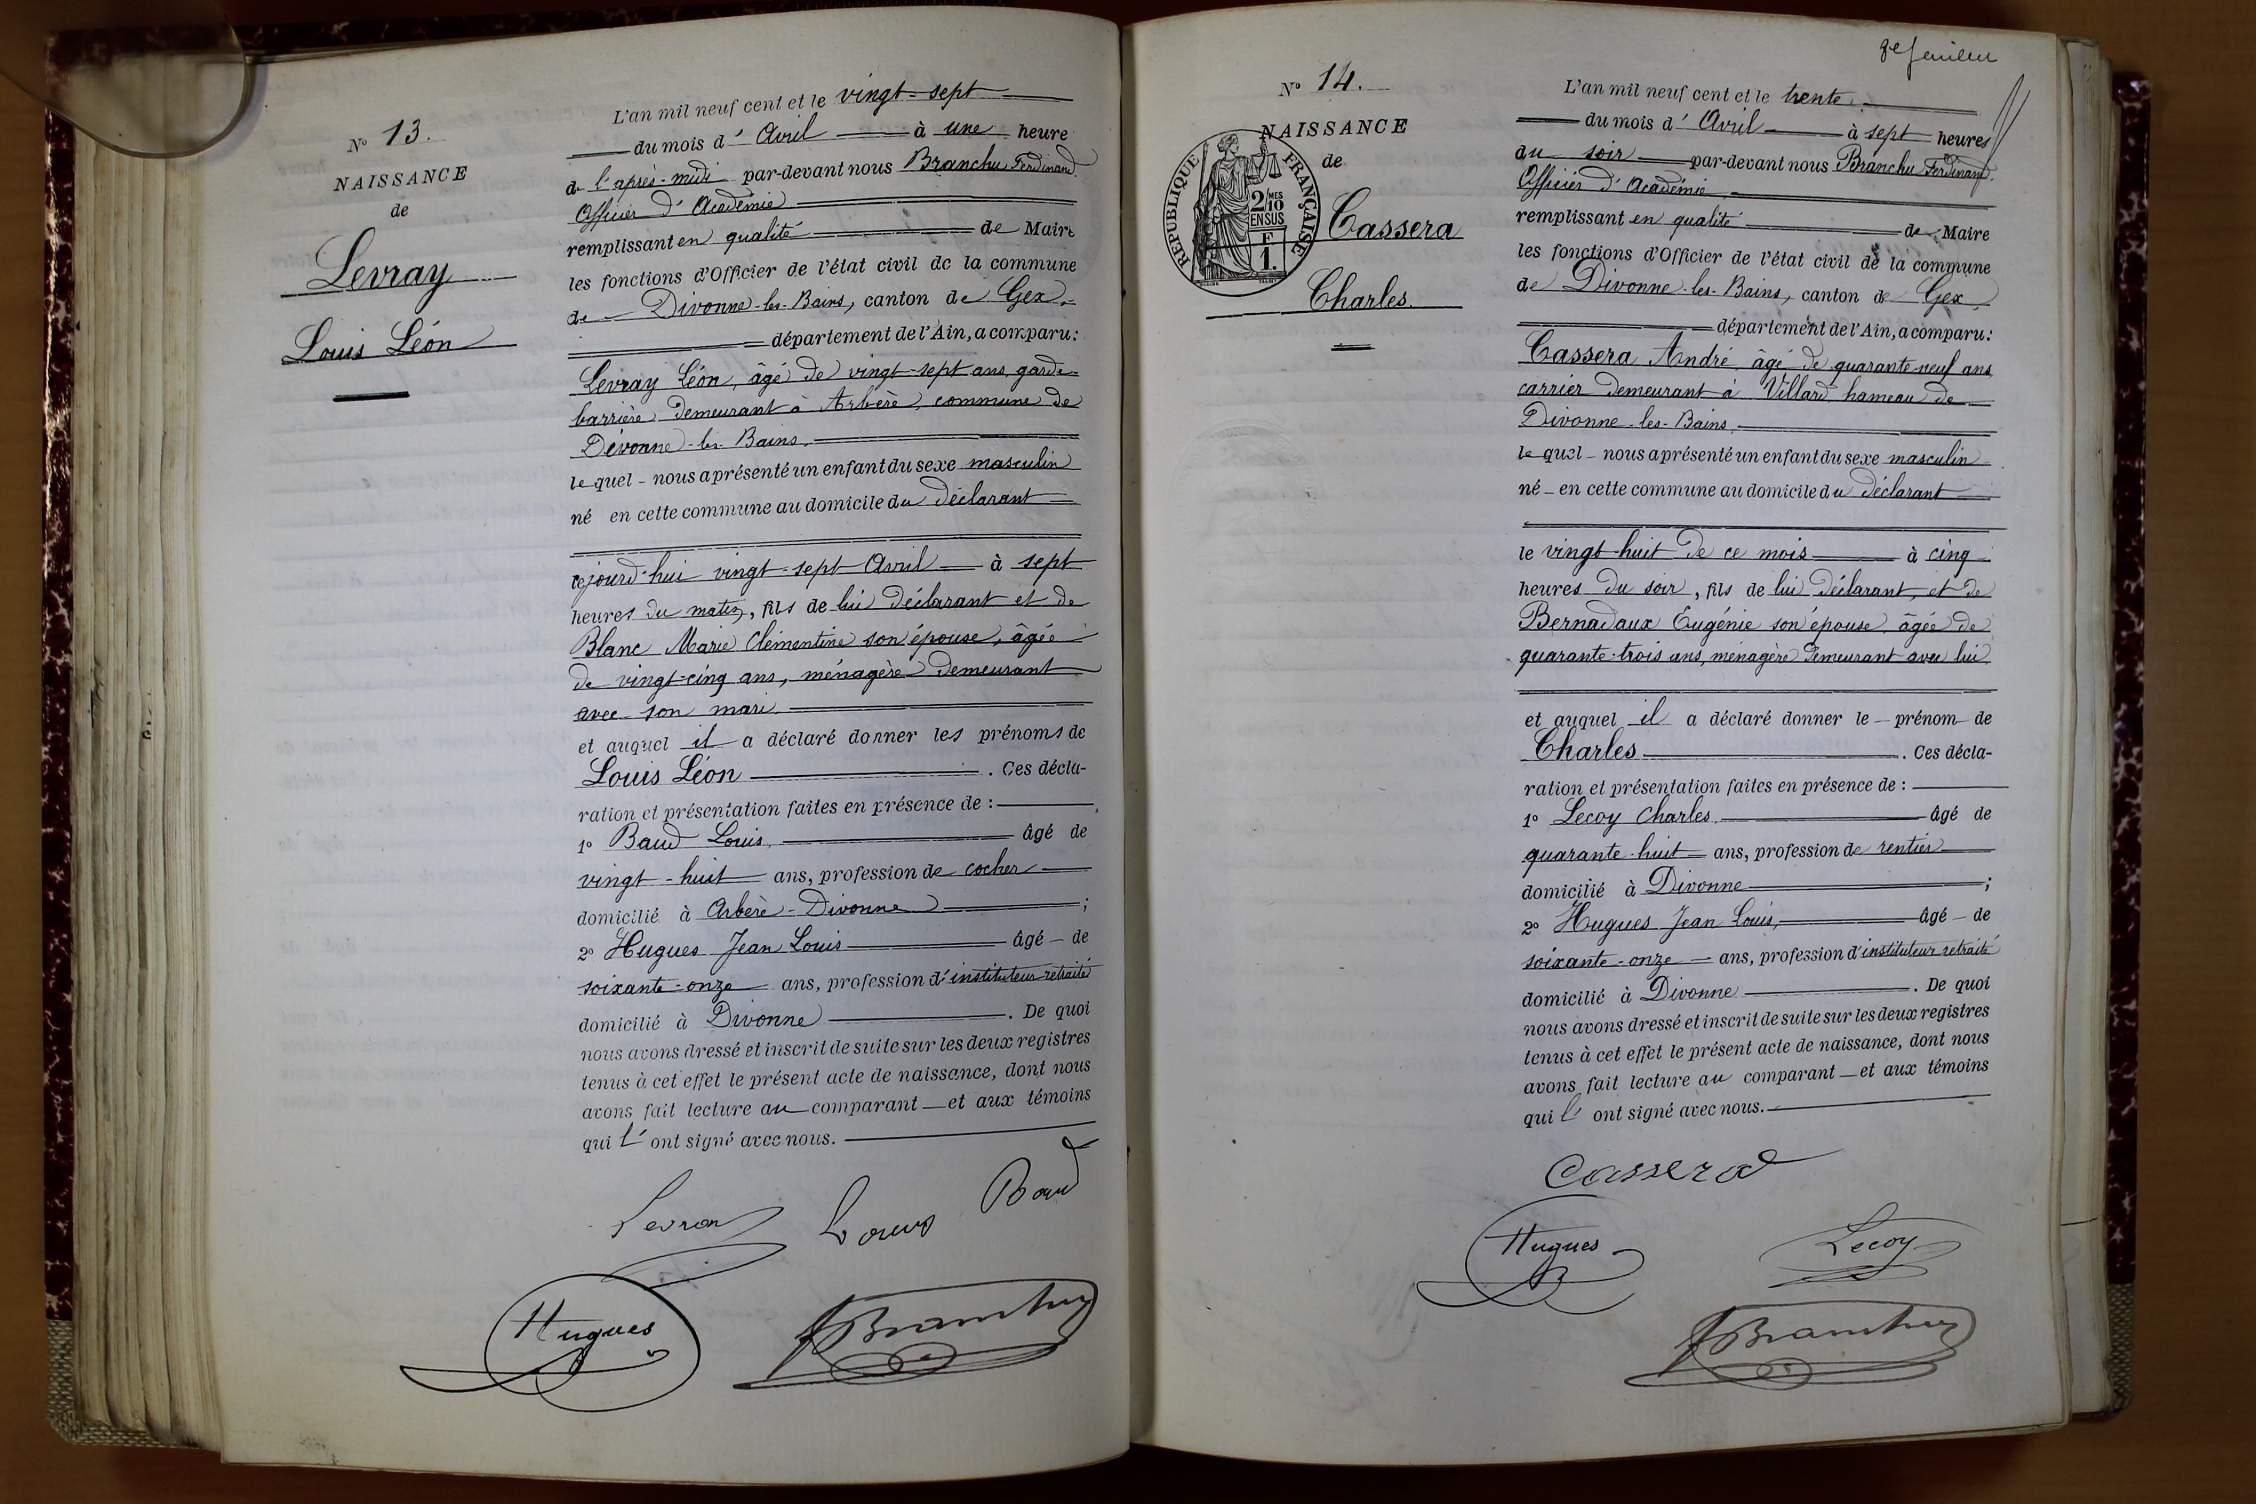 Nº 13.
NAISSANCE
de
Levray
Louis Léon
L'an mil neuf cent et le vingt-sept
du mois d'Avril à une heure
de l'après-midi par-devant nous Branchu Ferdinand
Officier d'Académie
remplissant en qualité de Maire
les fonctions d'Officier de l'état civil de la commune
de Divonne-les-Bains, canton de Gex
département de l'Ain, a comparu:
Levray Léon, âgé de vingt-sept ans, garde-
barrière demeurant à Arbère, commune de
Divonne-les-Bains.
lequel - nous a présenté un enfant du sexe masculin
né en cette commune au domicile du déclarant
cejourd'hui vingt-sept Avril à sept
heures du matin, fils de lui déclarant et de
Blanc Marie Clémentine son épouse, âgée
de vingt-cinq ans, ménagère demeurant
avec son mari.
et auquel il a déclaré donner les prénoms de
Louis Léon. Ces décla-
ration et présentation faites en présence de :
1º Baud Louis, âgé de
vingt-huit ans, profession de cocher
domicilié à Arbère-Divonne ;
2º Hugues Jean Louis âgé - de
soixante-onze ans, profession d'instituteur retraité
domicilié à Divonne. De quoi
nous avons dressé et inscrit de suite sur les deux registres
tenus à cet effet le présent acte de naissance, dont nous
avons fait lecture au comparant - et aux témoins
qui l'ont signé avec nous.
Levray Louis Baud
Hugues Branchu
8e feuillet
Nº 14.
NAISSANCE
de
RÉPUBLIQUE FRANÇAISE
2/10 MES
EN SUS
F
1.
Cassera
Charles.
L'an mil neuf cent et le trente
du mois d'Avril à sept heures
du soir par-devant nous Branchu Ferdinand.
Officier d'Académie
remplissant en qualité de Maire
les fonctions d'Officier de l'état civil de la commune
de Divonne-les-Bains, canton de Gex
département de l'Ain, a comparu:
Cassera André, âgé de quarante-neuf ans
carrier demeurant à Villard hameau de
Divonne-les-Bains.
lequel - nous a présenté un enfant du sexe masculin
né - en cette commune au domicile du déclarant
le vingt-huit de ce mois à cinq
heures du soir, fils de lui déclarant, et de
Bernadaux Eugénie son épouse âgée de
quarante-trois ans, ménagère demeurant avec lui
et auquel il a déclaré donner le - prénom - de
Charles. Ces décla-
ration et présentation faites en présence de :
1º Lecoy Charles. âgé de
quarante-huit ans, profession de rentier
domicilié à Divonne ;
2º Hugues Jean Louis, âgé - de
soixante-onze ans, profession d'instituteur retraité
domicilié à Divonne. De quoi
nous avons dressé et inscrit de suite sur les deux registres
tenus à cet effet le présent acte de naissance, dont nous
avons fait lecture au comparant - et aux témoins
qui l'ont signé avec nous.
Cassera
Hugues Lecoy
Branchu